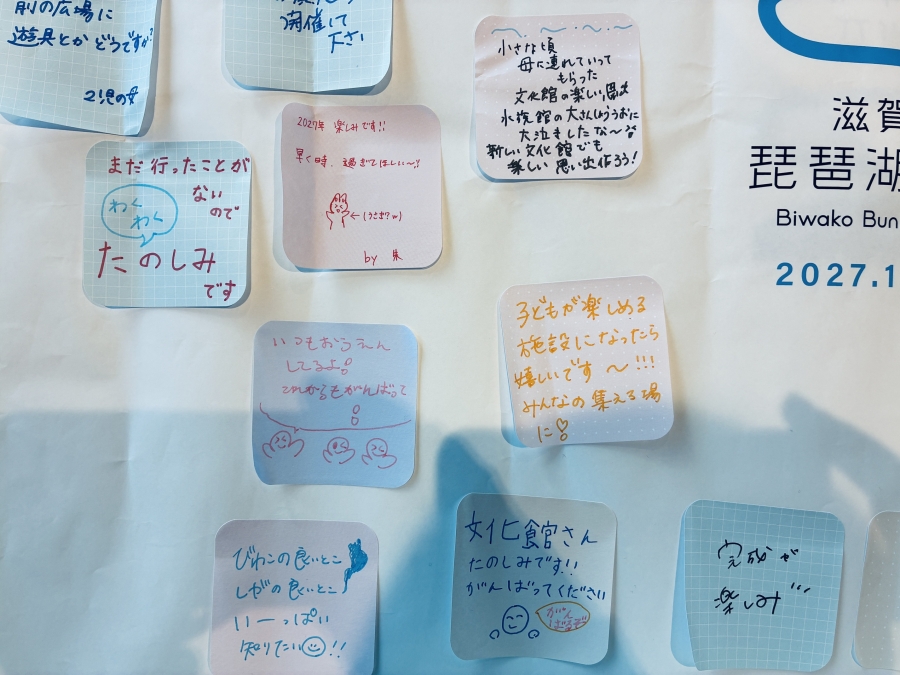 前の広場に
遊具とかどうですか?
2児の母
開催して
下さい
小さな頃
母に連れていって
もらった
文化館の楽しい思出
水族館の大さんしょううおに
大泣きしたな〜
新しい文化館でも
楽しい思い出作ろう!
滋賀
琵琶湖
Biwako Bun
2027.1
まだ行ったことが
ないので
わくわく
たのしみ
です
2027年 楽しみです!!
早く時、過ぎてほしい〜!
←(うさぎ?w)
by 朱
いつもおうえん
してるよ!
これからもがんばって
!
子どもが楽しめる
施設になったら
嬉しいです〜!!!
みんなの集える場
に♡!
びわこの良いとこ
しがの良いとこ
いーっぱい
知りたい!!
文化館さん
たのしみです!!
がんばってください
がんばるぞ
完成が
楽しみ